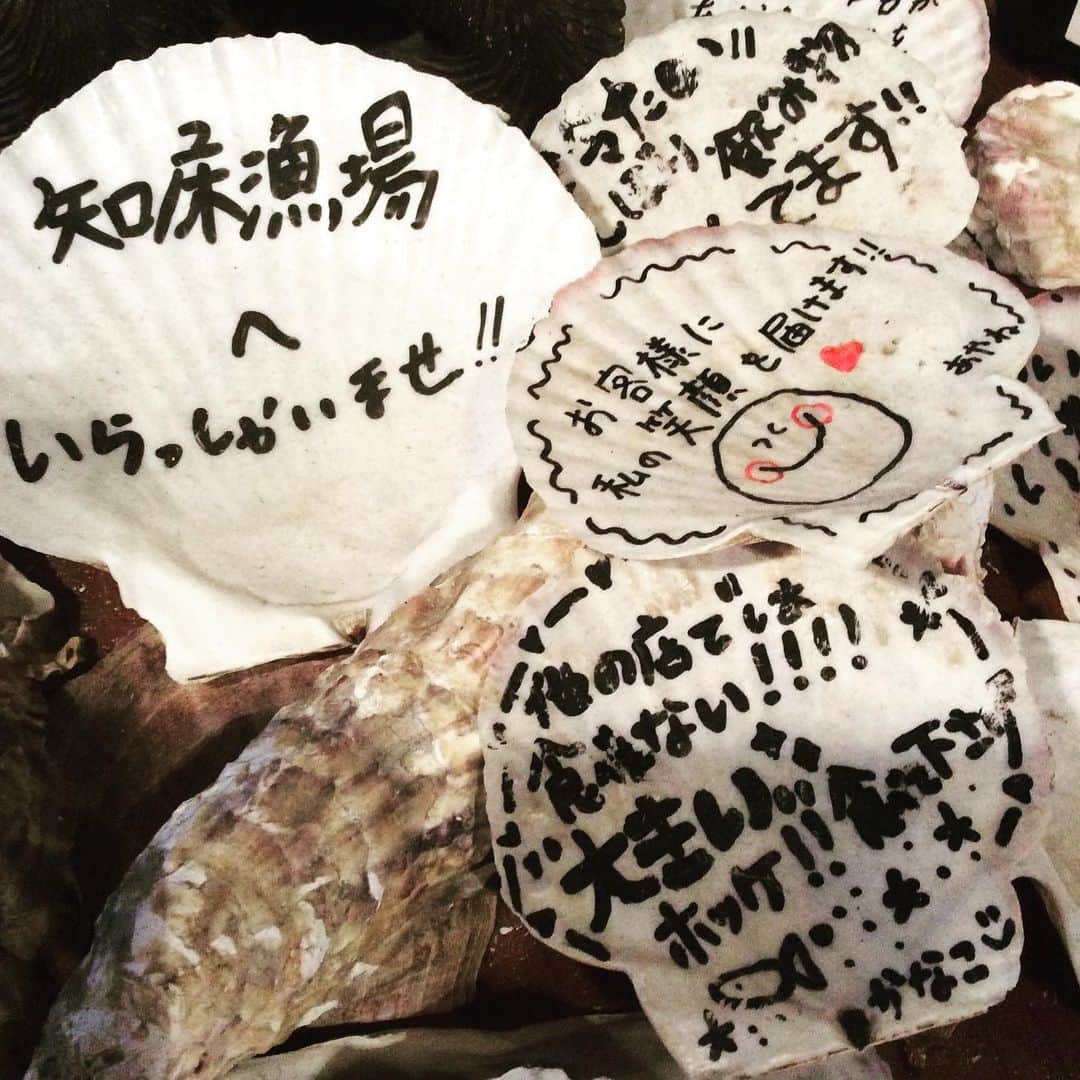 知床漁場
へ
いらっしゃいませ!!
飲み物
できます!!
お客様に
私の笑顔を届けます!!
あやね
他の店では
食えない!!!!
大きい
ホッケ!!
食べて下さい
かなこじ